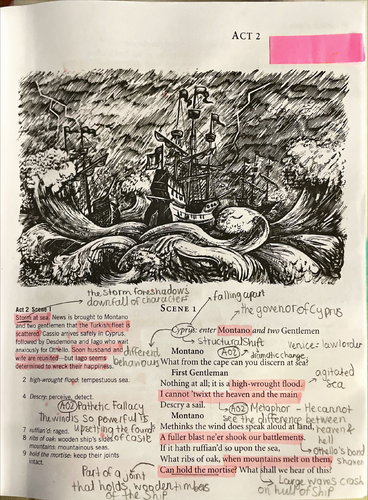 ACT 2
the storm foreshadows
downfall of character
falling apart
the govenor of Cyprus
Act 2 Scene 1
Storm at sea. News is brought to Montano
and two gentlemen that the Turkish fleet is
scattered. Cassio arrives safely in Cyprus,
followed by Desdemona and Iago who wait
anxiously for Othello. Soon husband and
wife are reunited – but Iago seems
determined to wreck their happiness.
different
behaviours
2 high-wrought flood: tempestuous sea.
4 Descry: perceive, detect.
AO2 Pathetic Fallacy
The wind is so powerful its
upsetting the found
7 ruffian'd: raged.
8 ribs of oak: wooden ship's sides.
of castle
mountains: mountainous seas.
9 hold the mortise: keep their joints
intact.
Part of a joint
that holds wooden timbers
of the ship
SCENE 1
Cyprus: enter Montano and two Gentlemen
structural shift
Venice = law/order
Montano
AO2
dramatic change
What from the cape can you discern at sea?
First Gentleman
agitated
sea
Nothing at all; it is a high-wrought flood:
I cannot 'twixt the heaven and the main
Descry a sail.
AO2 Metaphor - He cannot
see the difference between
heaven &
hell
Montano
Methinks the wind does speak aloud at land,
A fuller blast ne'er shook our battlements.
Othello's bond
shaken
If it hath ruffian'd so upon the sea,
What ribs of oak, when mountains melt on them,
Can hold the mortise? What shall we hear of this?
Large waves crash
on hull of ship